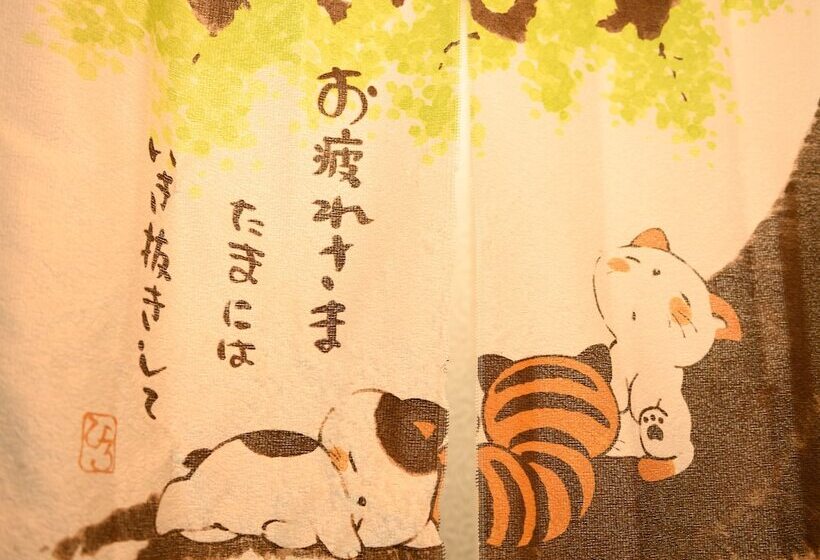 お疲れさま
たまには
いき抜きして
ひろ